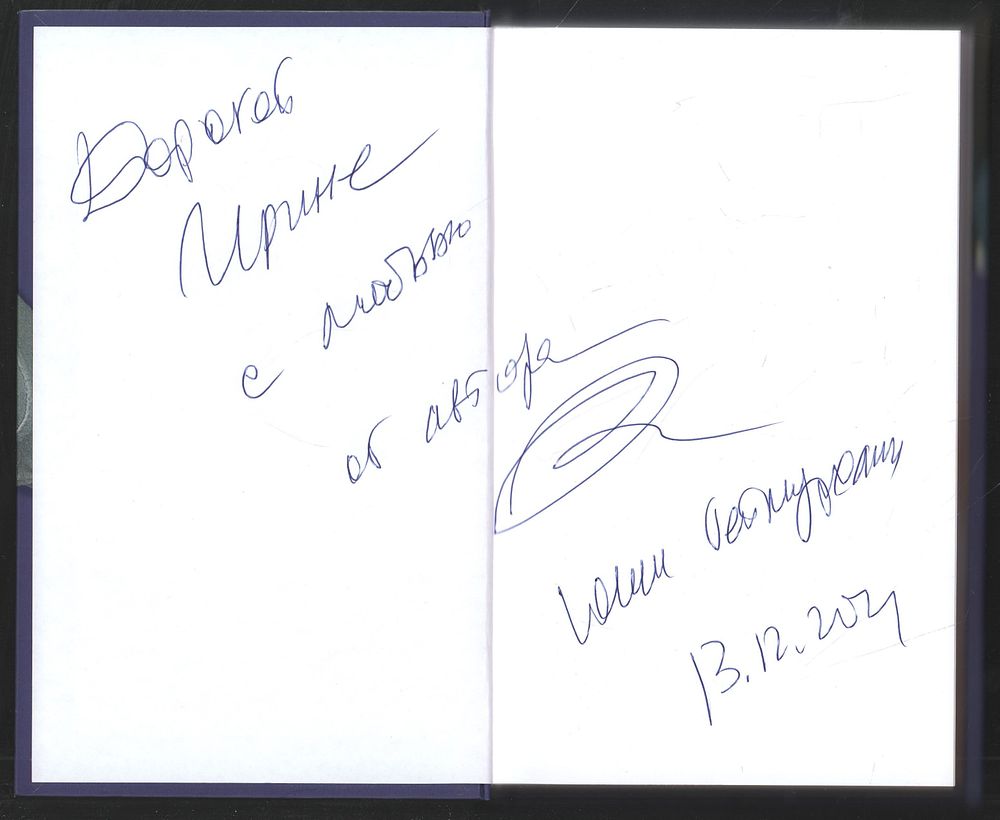 Дорогой
Ирине
с любовью
от автора
13.12.2024